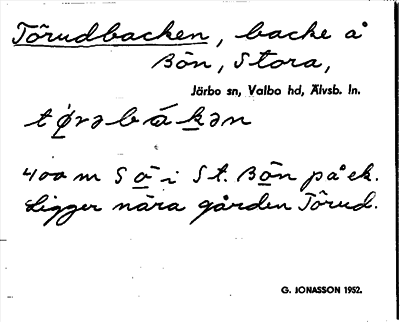 Tôrudbacken, backe å
Bön, Stora,
Järbo sn, Valbo hd, Älvsb. ln.
tø̀rəbákən
400 m SÖ i St. Bön på ek.
Ligger nära gården Tôrud.
G. JONASSON 1952.